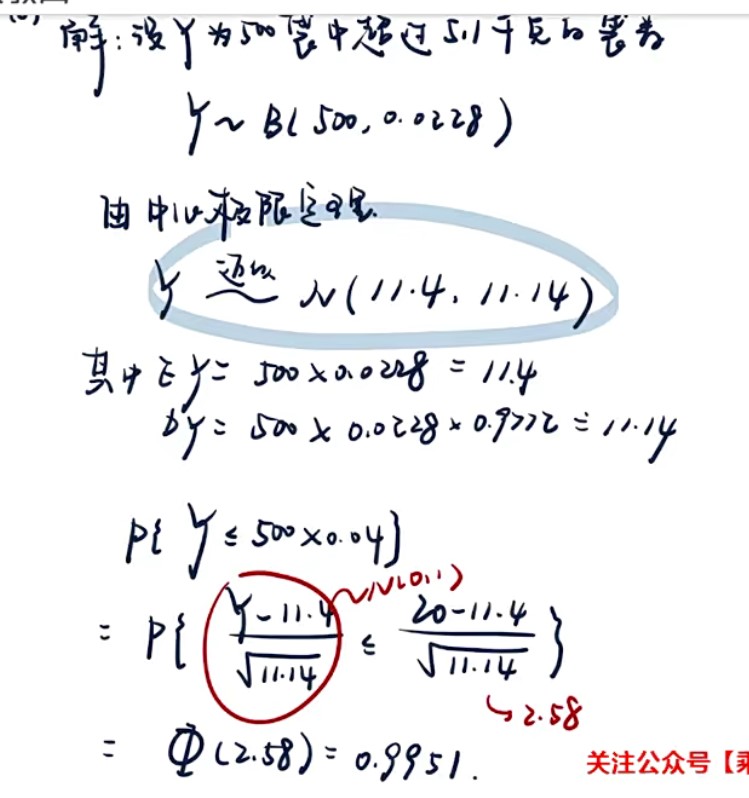 解：设Y为500袋中超过5.1千克的袋数
Y ~ B(500, 0.0228)
由中心极限定理.
Y 近似~ N(11.4, 11.14)
其中 EY = 500×0.0228 = 11.4
DY = 500 × 0.0228 × 0.9772 ≐ 11.14
P{ Y ≤ 500×0.04}
~N(0,1)
= P{ (Y-11.4)/√11.14 ≤ (20-11.4)/√11.14 }
↳ 2.58
= Φ(2.58) = 0.9951.
关注公众号【乘